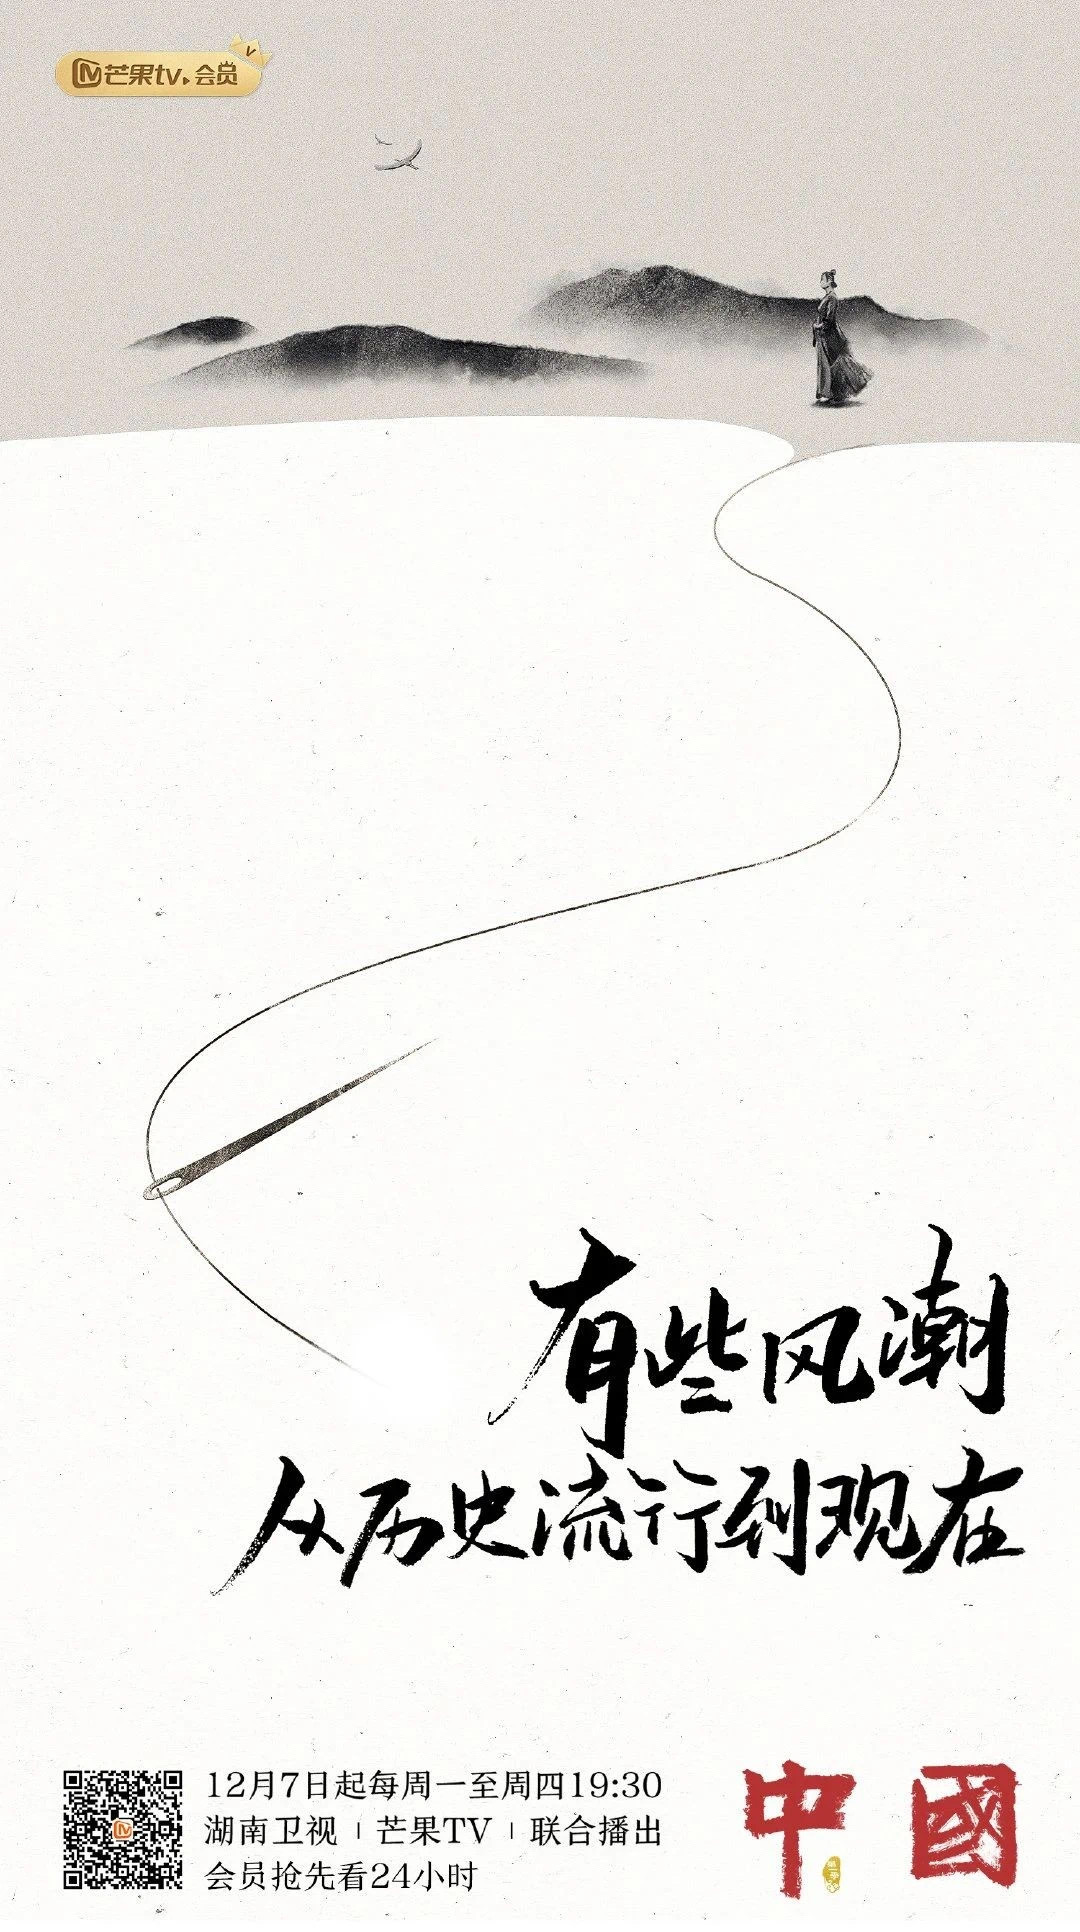 芒果tv 会员
有些风潮
从历史流行到现在
12月7日起每周一至周四19:30
湖南卫视 | 芒果TV | 联合播出
会员抢先看24小时
中國
第一季